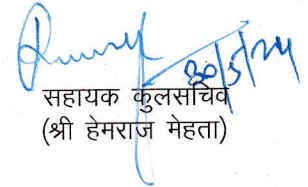 30/5/24
सहायक कुलसचिव
(श्री हेमराज मेहता)